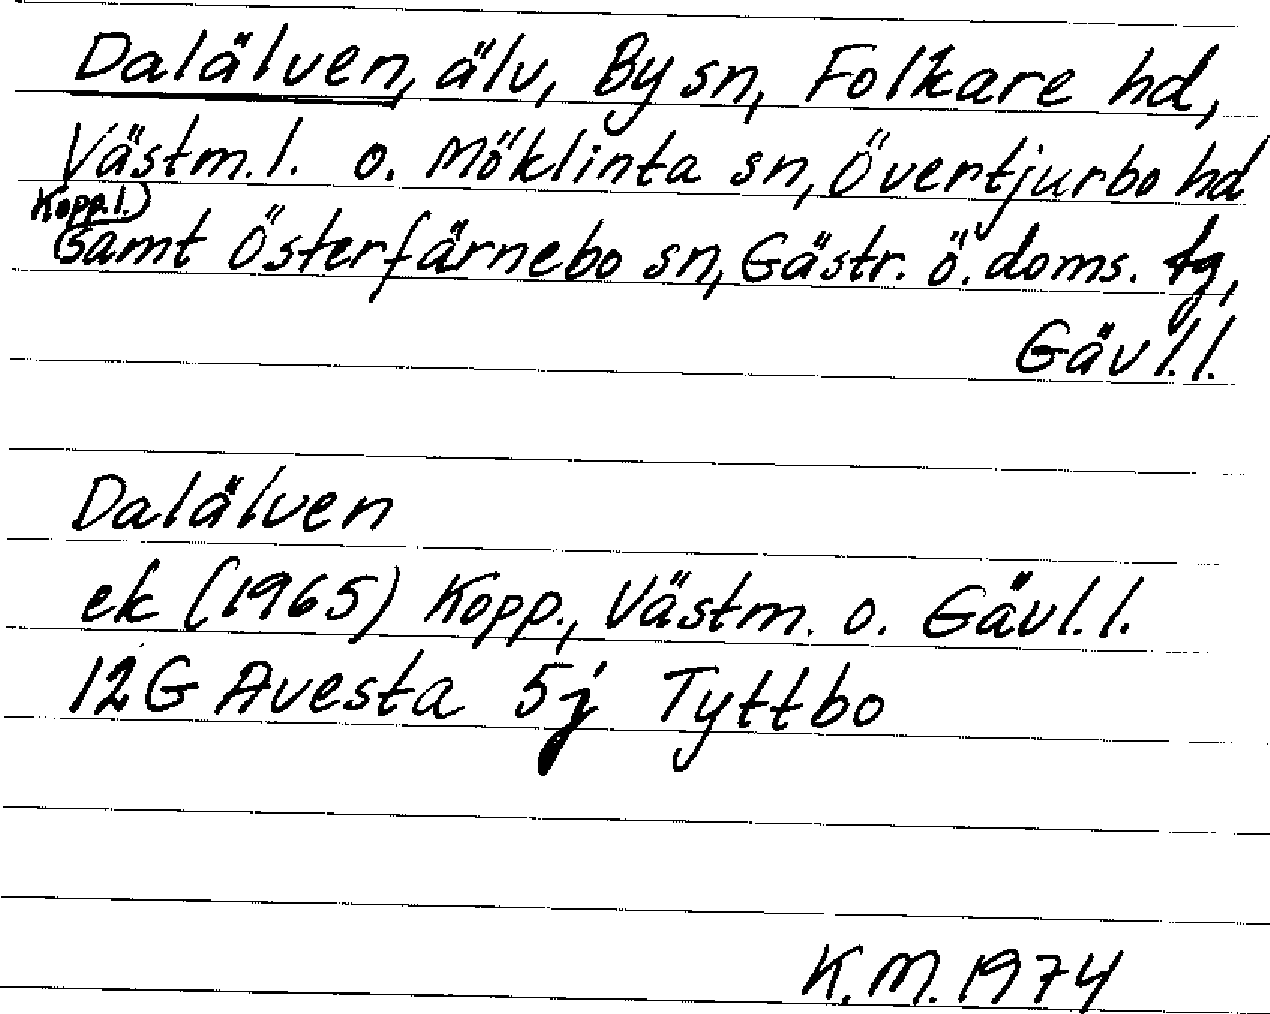 Dalälven, älv, By sn, Folkare hd,
Västm.l. o. Möklinta sn, Övertjurbo hd
Kopp.l.)
Samt Österfärnebo sn, Gästr. ö. doms. tg,
Gävl.l.
Dalälven
ek (1965) Kopp., Västm. o. Gävl.l.
12G Avesta 5j Tyttbo
K.M. 1974